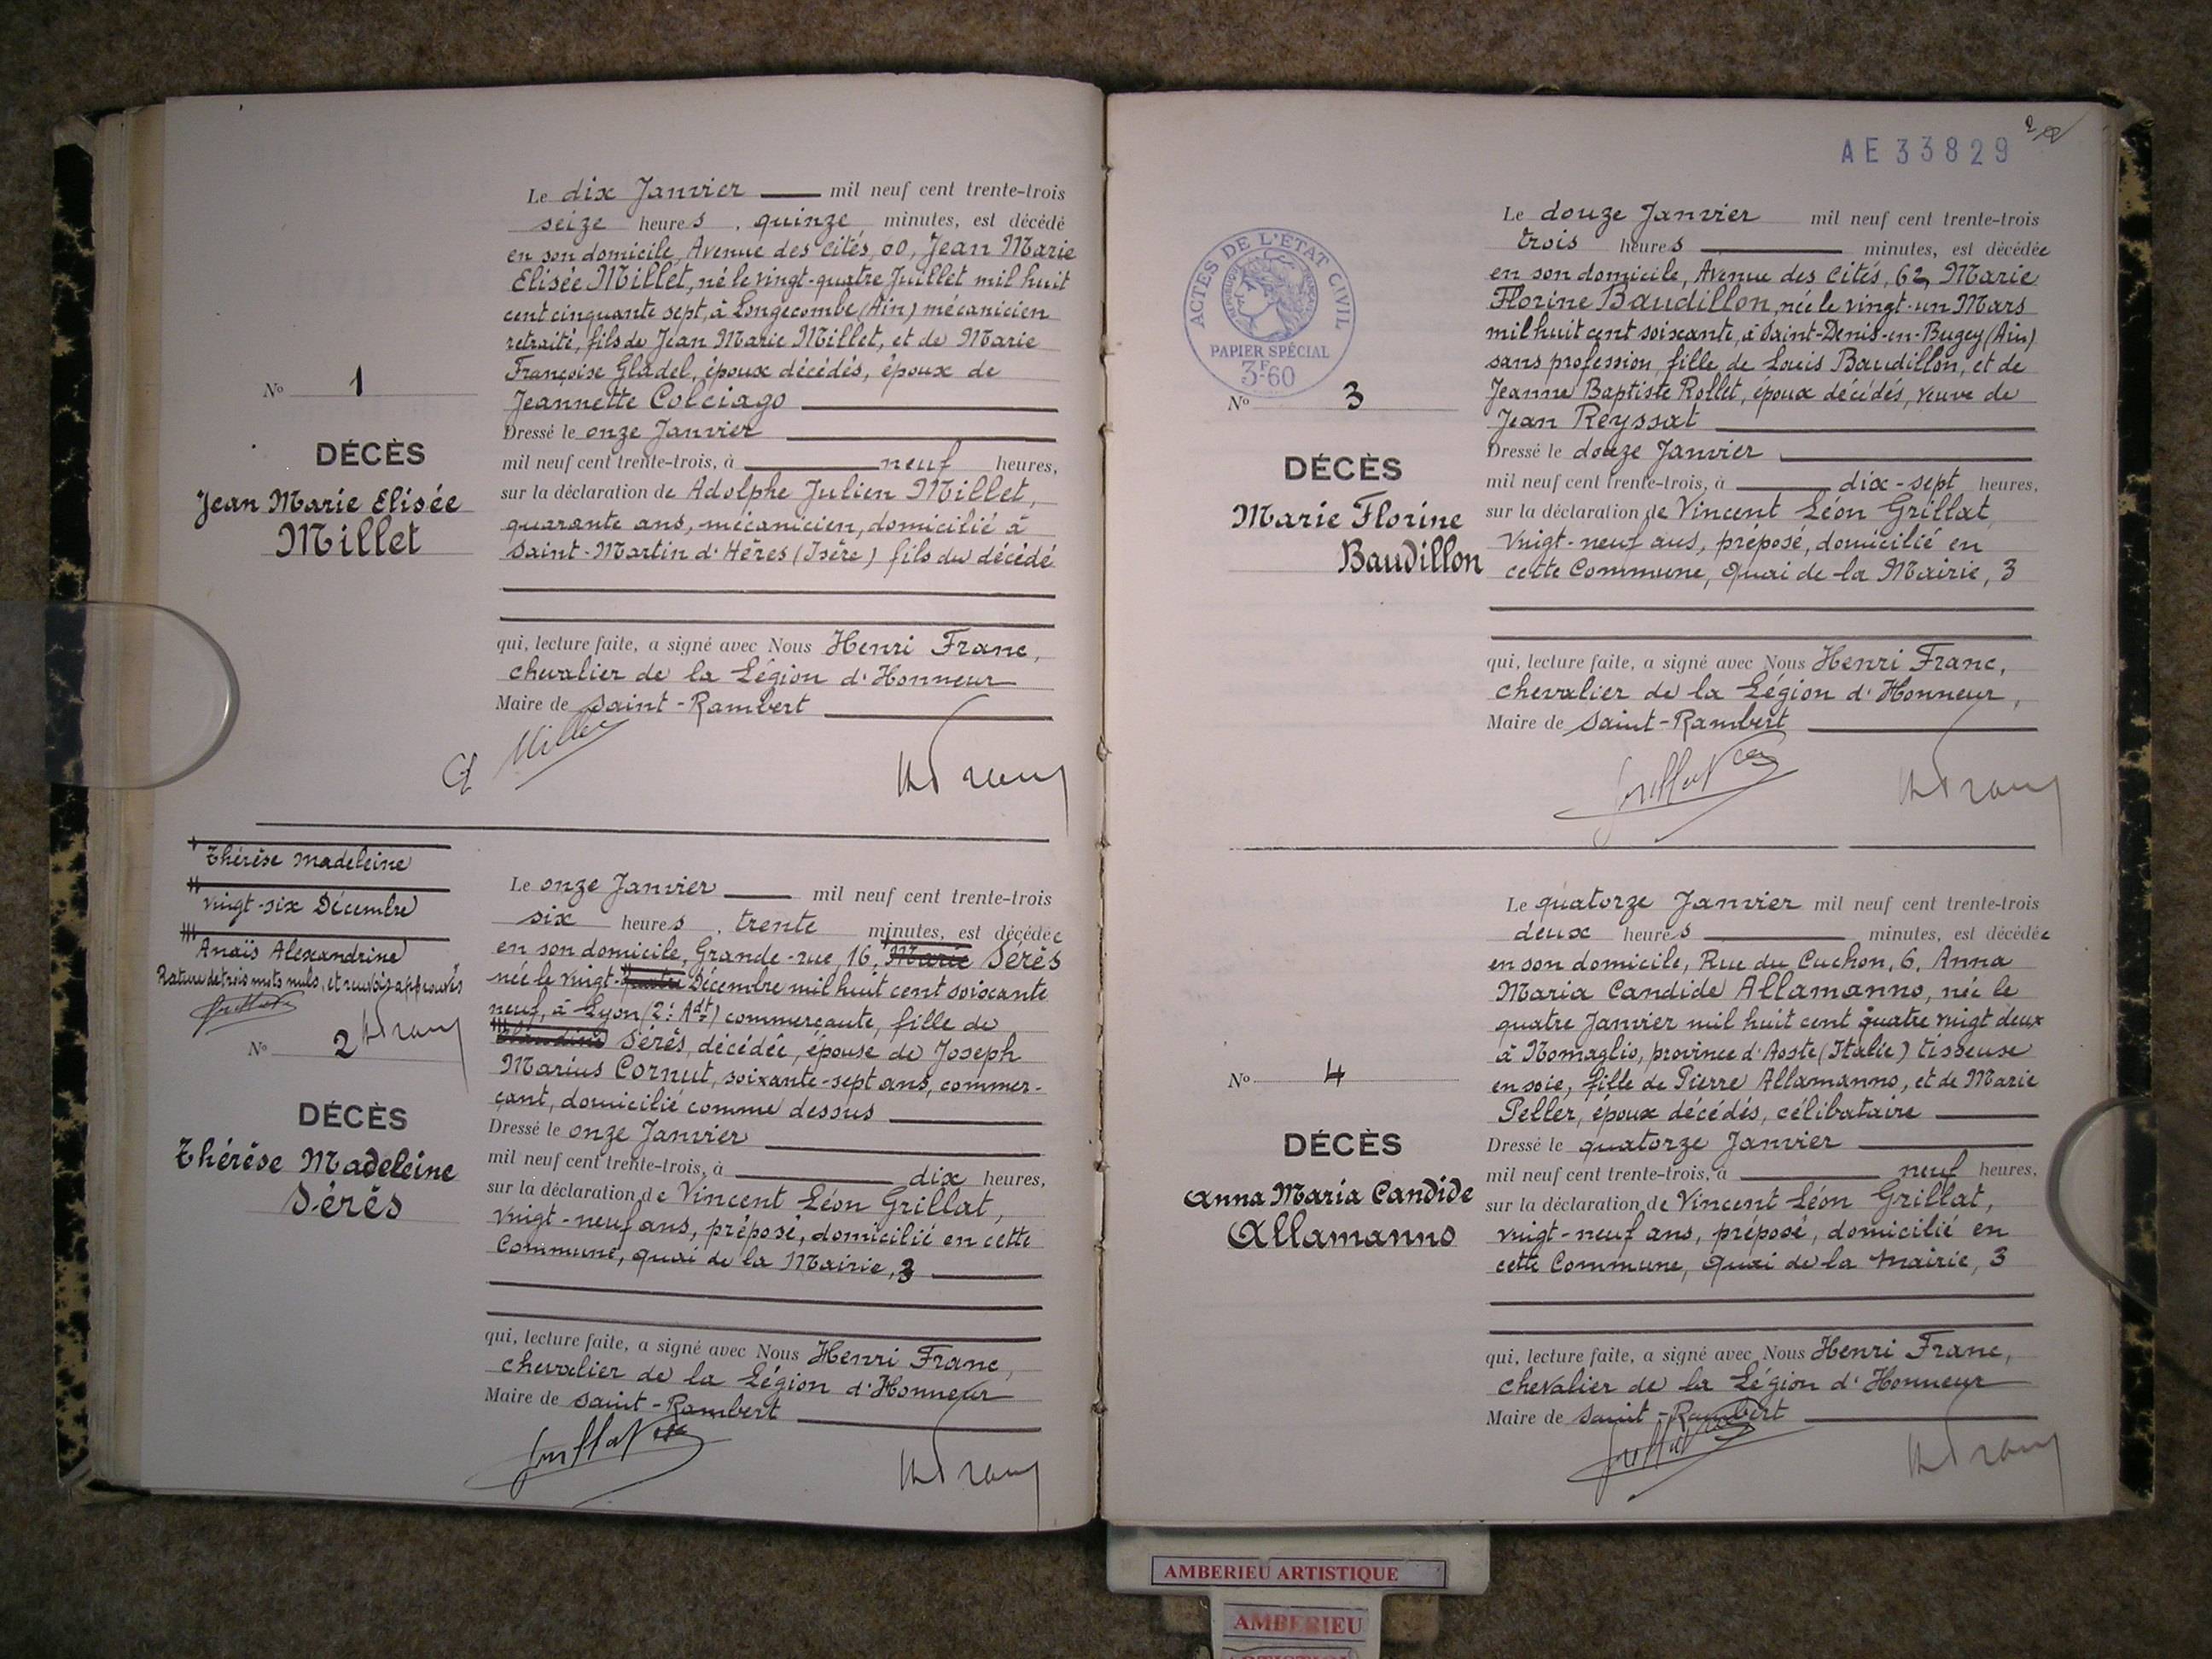 Le dix Janvier mil neuf cent trente-trois
seize heures, quinze minutes, est décédé
en son domicile, Avenue des Cités, 60, Jean Marie
Elisée Millet, né le vingt-quatre Juillet mil huit
cent cinquante sept, à Longecombe (Ain) mécanicien
retraité, fils de Jean Marie Millet, et de Marie
Françoise Gladel, époux décédés, époux de
Jeannette Colciago
Dressé le onze Janvier
mil neuf cent trente-trois, à neuf heures,
sur la déclaration de Adolphe Julien Millet,
quarante ans, mécanicien, domicilié à
Saint-Martin d'Hères (Isère) fils du décédé
qui, lecture faite, a signé avec Nous Henri Franc,
chevalier de la Légion d'Honneur
Maire de Saint-Rambert
Millet
HFranc
No 1
DÉCÈS
Jean Marie Elisée
Millet
Thérèse Madeleine
vingt-six Décembre
Anaïs Alexandrine
Rature de trois mots nuls, et renvois approuvés
Grillat
HFranc
No 2
DÉCÈS
Thérèse Madeleine
Sérès
Le onze Janvier mil neuf cent trente-trois
six heures, trente minutes, est décédée
en son domicile, Grande-rue, 16, Marie Sérès
née le vingt-quatre Décembre mil huit cent soixante
neuf, à Lyon (2e Adt) commerçante, fille de
Claudine Sérès, décédée, épouse de Joseph
Marius Cornut, soixante-sept ans, commer-
çant, domicilié comme dessus
Dressé le onze Janvier
mil neuf cent trente-trois, à dix heures,
sur la déclaration de Vincent Léon Grillat,
vingt-neuf ans, préposé, domicilié en cette
Commune, quai de la Mairie, 3
qui, lecture faite, a signé avec Nous Henri Franc,
chevalier de la Légion d'Honneur
Maire de Saint-Rambert
Grillat
HFranc
AE33829
2
ACTES DE L'ETAT CIVIL
PAPIER SPÉCIAL
3F60
No 3
DÉCÈS
Marie Florine
Baudillon
Le douze Janvier mil neuf cent trente-trois
trois heures minutes, est décédée
en son domicile, Avenue des Cités, 62, Marie
Florine Baudillon, née le vingt-un Mars
mil huit cent soixante, à Saint-Denis-en-Bugey (Ain)
sans profession, fille de Louis Baudillon, et de
Jeanne Baptiste Rollet, époux décédés, veuve de
Jean Reyssat
Dressé le douze Janvier
mil neuf cent trente-trois, à dix-sept heures,
sur la déclaration de Vincent Léon Grillat
vingt-neuf ans, préposé, domicilié en
cette Commune, quai de la Mairie, 3
qui, lecture faite, a signé avec Nous Henri Franc,
chevalier de la Légion d'Honneur,
Maire de Saint-Rambert
Grillat
HFranc
No 4
DÉCÈS
Anna Maria Candide
Allamanno
Le quatorze Janvier mil neuf cent trente-trois
deux heures minutes, est décédée
en son domicile, Rue du Cuchon, 6, Anna
Maria Candide Allamanno, née le
quatre Janvier mil huit cent quatre vingt deux
à Nomaglio, province d'Aoste (Italie) tisseuse
en soie, fille de Pierre Allamanno, et de Marie
Peller, époux décédés, célibataire
Dressé le quatorze Janvier
mil neuf cent trente-trois, à neuf heures,
sur la déclaration de Vincent Léon Grillat,
vingt-neuf ans, préposé, domicilié en
cette Commune, quai de la Mairie, 3
qui, lecture faite, a signé avec Nous Henri Franc,
chevalier de la Légion d'Honneur
Maire de Saint-Rambert
Grillat
HFranc
AMBERIEU ARTISTIQUE
AMBERIEU
ARTISTIQUE